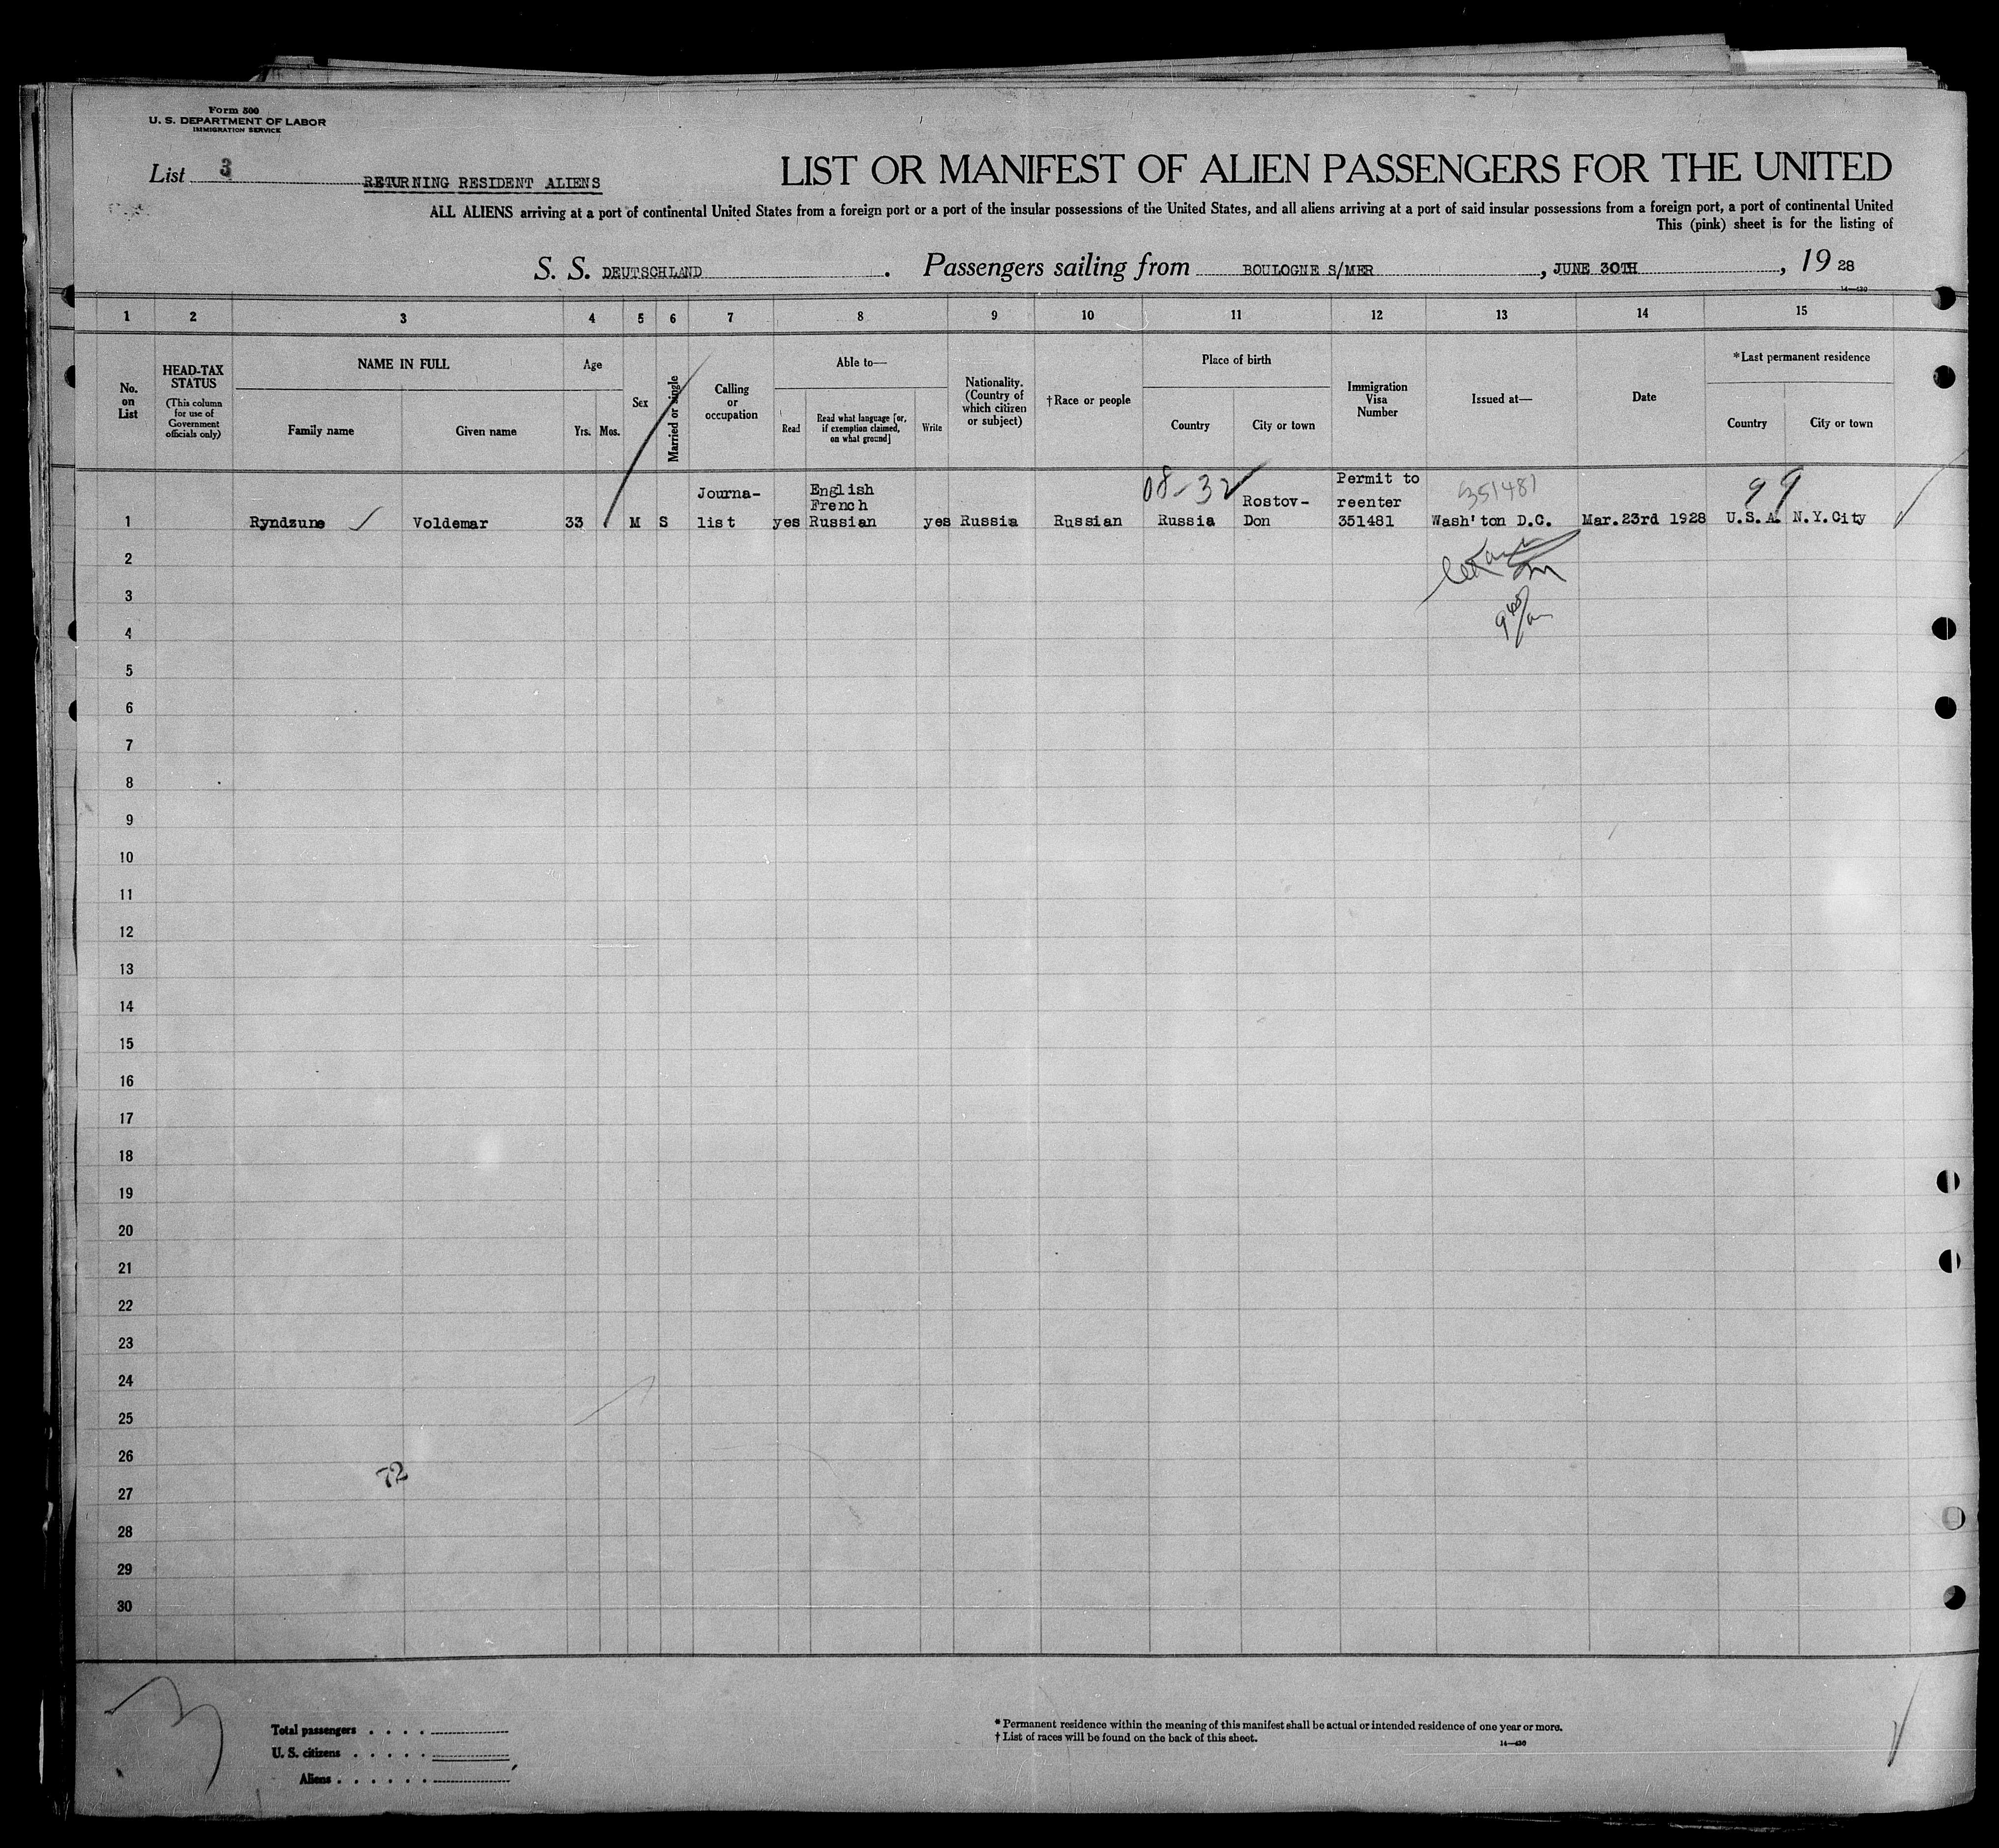 Form 500
U. S. DEPARTMENT OF LABOR
IMMIGRATION SERVICE
List 3
RETURNING RESIDENT ALIENS
LIST OR MANIFEST OF ALIEN PASSENGERS FOR THE UNITED
ALL ALIENS arriving at a port of continental United States from a foreign port or a port of the insular possessions of the United States, and all aliens arriving at a port of said insular possessions from a foreign port, a port of continental United
This (pink) sheet is for the listing of
S. S. DEUTSCHLAND. Passengers sailing from BOULOGNE S/MER, JUNE 30TH, 19 28
1 2 3 4 5 6 7 8 9 10 11 12 13 14 15
No. on List
HEAD-TAX STATUS
(This column for use of Government officials only)
NAME IN FULL
Family name
Given name
Age
Yrs. Mos.
Sex
Married or single
Calling or occupation
Able to—
Read
Read what language [or, if exemption claimed, on what ground]
Write
Nationality. (Country of which citizen or subject)
†Race or people
Place of birth
Country
City or town
Immigration Visa Number
Issued at—
Date
*Last permanent residence
Country
City or town
1 Ryndzune Voldemar 33 M S Journa-list yes English French Russian yes Russia Russian 08-32 Russia Rostov-Don Permit to reenter 351481 351481 Wash'ton D.C. Mar.23rd 1928 99 U.S.A. N.Y.City
2
3
4
5
6
7
8
9
10
11
12
13
14
15
16
17
18
19
20
21
22
23
24
25
26
72
27
28
29
30
3
Total passengers
U. S. citizens
Aliens
* Permanent residence within the meaning of this manifest shall be actual or intended residence of one year or more.
† List of races will be found on the back of this sheet.